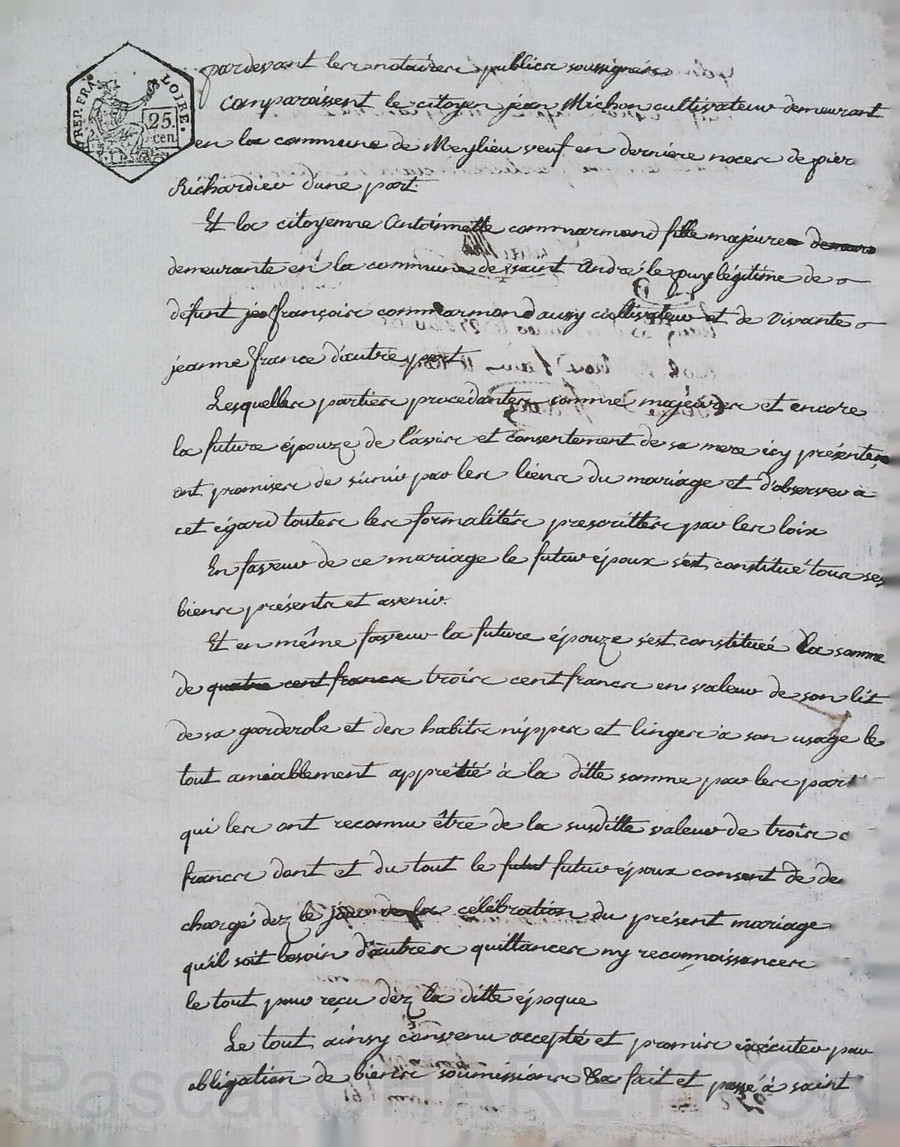 REP. FRA.
LOIRE.
25.
cen.
pardevant les notaires publics soussignés
Comparaissent le citoyen jean Michon cultivateur demeurant
en la commune de Meylieu veuf en derniere noces de pier
Richardier dune part.
Et la citoyenne Antoinette commarmond fille majeure
demeurante en la commune de saint André le puy légitime de
défunt françois commarmond aussy cultivateur et de vivante
jeanne france d'autre part
Lesquelles parties procédantes comme majeures et encore
la future épouze de l'avis et consentement de sa mere icy présente
ont promises de s'unir par les liens du mariage et d'observer à
cet égard toutes les formalités prescrittes par les loix
En faveur de ce mariage le futur époux s'est constitué tous ses
biens présents et avenir.
Et en même faveur la future épouze sest constituée la somme
de quatre cent francs trois cent francs en valeur de son lit
de sa garderobe et des habits nippes et linges à son usage le
tout amiablement apprétié à la ditte somme par les part
qui les ont reconnu être de la susditte valeur de trois c
francs dont et du tout le futut futur époux consent de de
chargé dez le jour de la célébration du présent mariage
qu'il soit besoin d'autres quittances ny reconnoissances
le tout pour reçu déz la ditte époque
Le tout ainsy convenu accepté et promis exécuter par
obligation de biens soumissions &a fait et passé à saint
Pascal CHAREYRON